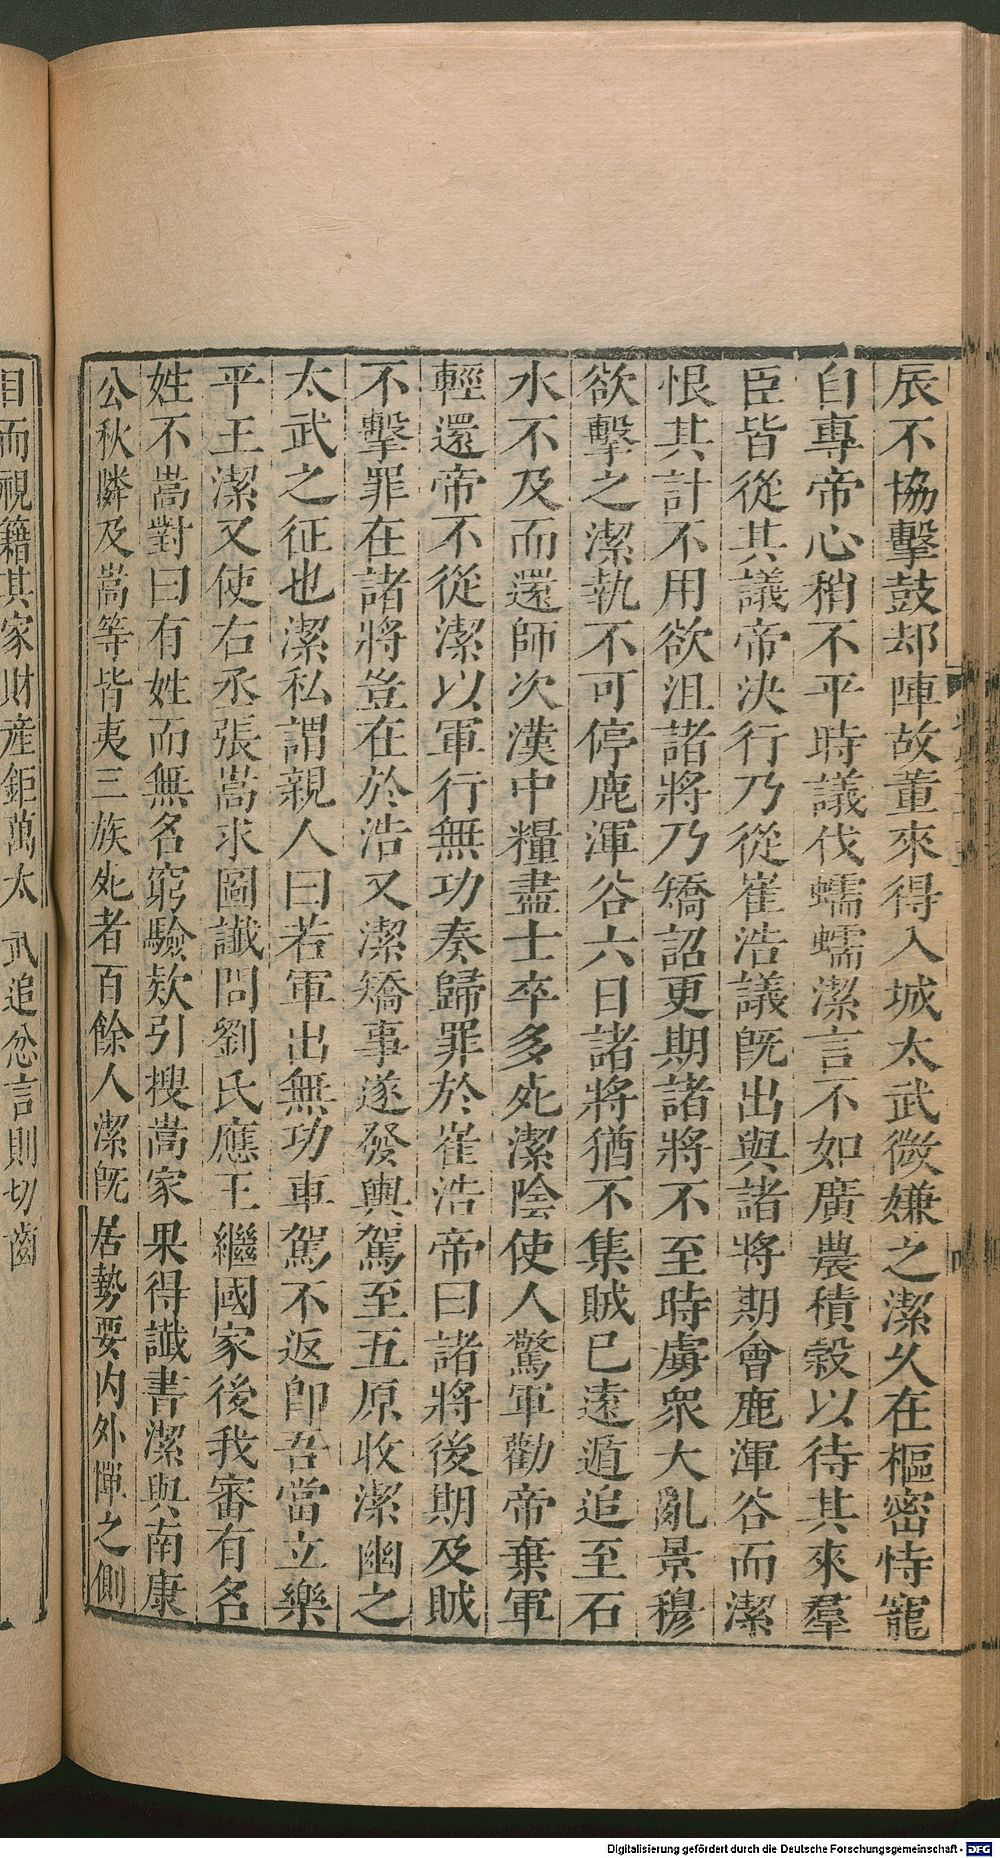 辰不協擊鼓却陣故董來得入城太武微嫌之潔久在樞密恃寵
自專帝心稍不平時議伐蠕蠕潔言不如廣農積穀以待其來羣
臣皆從其議帝決行乃從崔浩議旣出與諸將期會鹿渾谷而潔
恨其計不用欲沮諸將乃矯詔更期諸將不至時虜衆大亂景穆
欲擊之潔執不可停鹿渾谷六日諸將猶不集賊已遠遁追至石
水不及而還師次漠中糧盡士卒多死潔陰使人驚軍勸帝棄軍
輕還帝不從潔以軍行無功奏歸罪於崔浩帝曰諸將後期及賊
不擊罪在諸將豈在於浩又潔矯事遂發輿駕至五原收潔幽之
太武之征也潔私謂親人曰若軍出無功車駕不返卽吾當立樂
平王潔又使右丞張嵩求圖讖問劉氏應王繼國家後我審有名
姓不嵩對曰有姓而無名窮驗款引搜嵩家果得讖書潔與南康
公秋隣及嵩等皆夷三族死者百餘人潔旣居勢要內外憚之側
目而視籍其家財産鉅萬太武追忿言則切齒
Digitalisierung gefördert durch die Deutsche Forschungsgemeinschaft - DFG